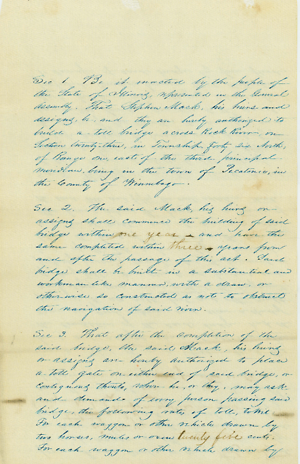 Sec 1. Be it enacted by the people of
the State of Illinois, represented in the General
Assembly, That Stephen Mack, his heirs and
assigns, be and they are hereby authorized to
build a toll bridge across Rock River, on
Section twenty three, in Township forty six North,
of Range one, east of the third principal
meridian, being in the town of Pecatonica, in
the County of Winnebago.
Sec 2. The said Mack, his heirs or
assigns shall commence the building of said
bridge within one year and have the
same completed within three years from
and after the passage of this act. Said
bridge shall be built in a substantial and
workmanlike manner, with a draw or
otherwise so constructed as not to obstruct
the navigation of said river.
Sec 3. That after the completion of the
said bridge, the said Mack, his heirs
or assigns are hereby authorized to place
a toll gate on either end of said bridge, or
contiguous thereto, when he, or they, may ask
and demand of every person passing said
bridge, the following rates of toll, to wit:
For each waggon or other vehicle drawn by
two horses, mules or oxen twenty five cents.
For each waggon or other vehicle drawn by